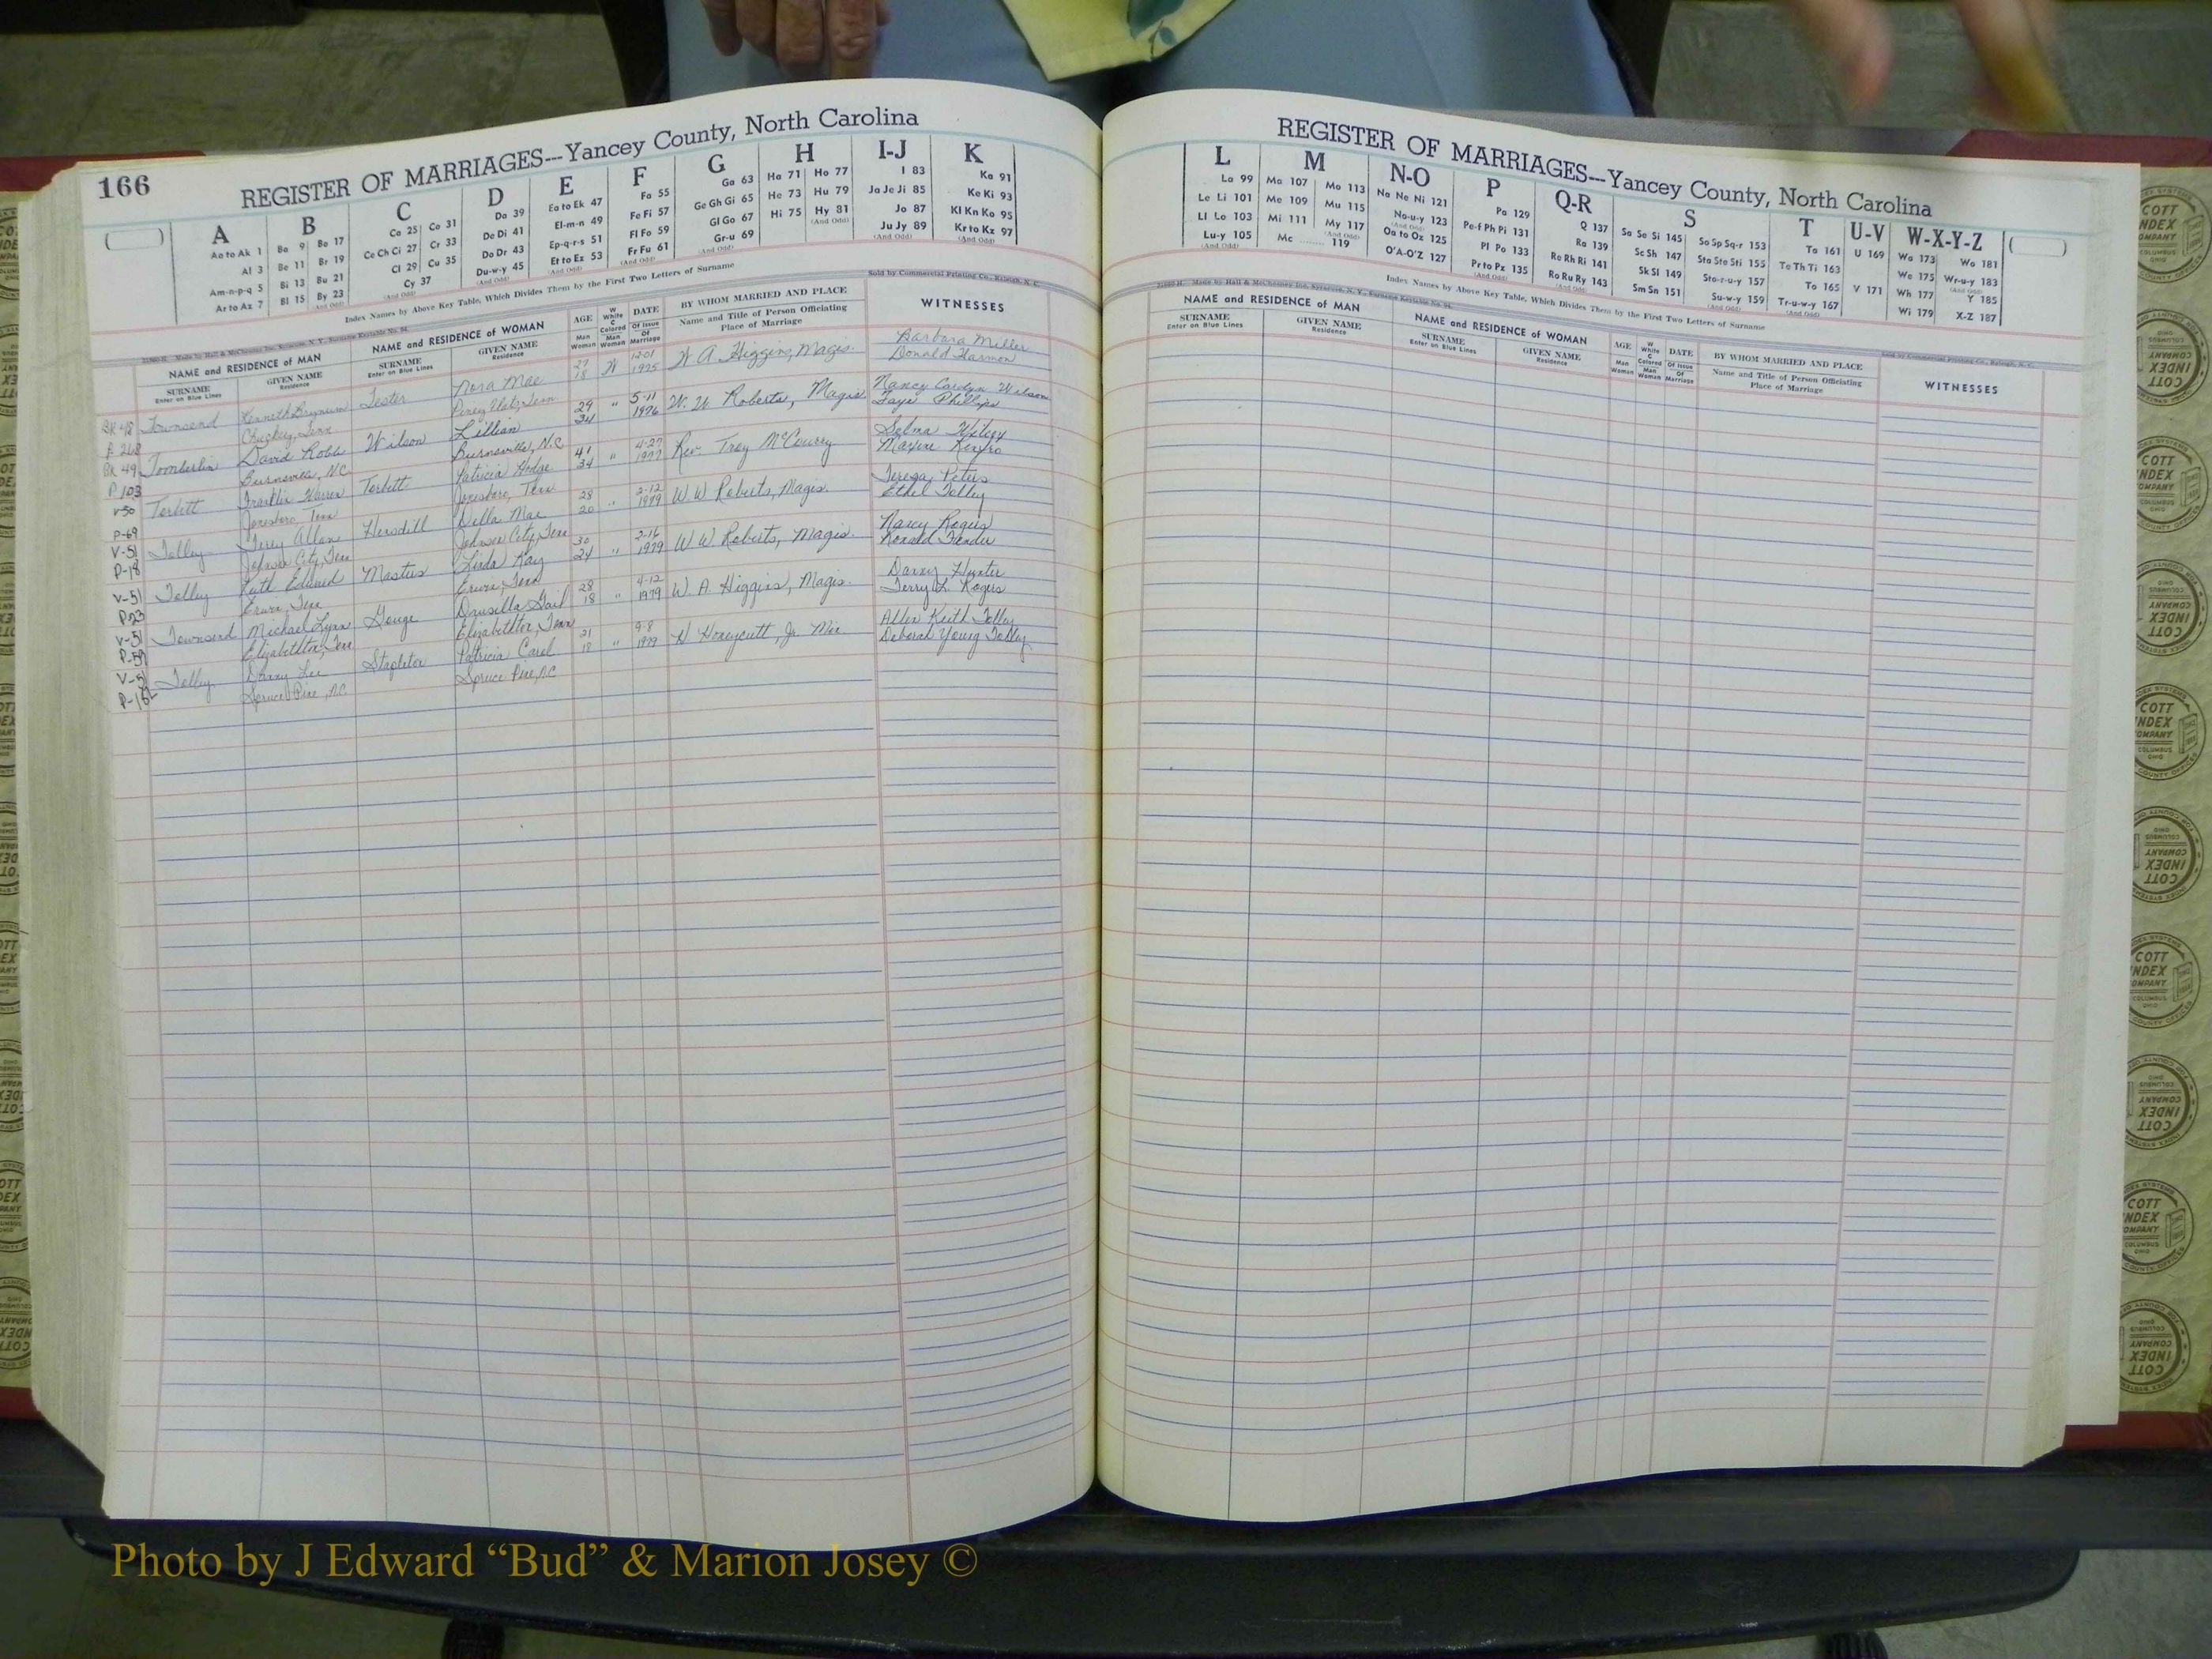 166
REGISTER OF MARRIAGES---Yancey County, North Carolina
A B C D E F G H I-J K
Aa to Ak 1 Ba 9 Bo 17 Ca 25 Co 31 Da 39 Ea to Ek 47 Fa 55 Ga 63 Ha 71 Ho 77 I 83 Ka 91
Al 3 Be 11 Br 19 Ce Ch Ci 27 Cr 33 De Di 41 El-m-n 49 Fe Fi 57 Ge Gh Gi 65 He 73 Hu 79 Ja Je Ji 85 Ke Ki 93
Am-n-p-q 5 Bi 13 Bu 21 Cl 29 Cu 35 Do Dr 43 Ep-q-r-s 51 Fl Fo 59 Gl Go 67 Hi 75 Hy 81 Jo 87 Kl Kn Ko 95
Ar to Az 7 Bl 15 By 23 Cy 37 Du-w-y 45 Et to Ez 53 Fr Fu 61 Gr-u 69 Ju Jy 89 Kr to Kz 97
(And Odd)
Index Names by Above Key Table, Which Divides Them by the First Two Letters of Surname
Sold by Commercial Printing Co., Raleigh, N. C.
NAME and RESIDENCE of MAN NAME and RESIDENCE of WOMAN AGE W White C Colored DATE BY WHOM MARRIED AND PLACE WITNESSES
SURNAME Enter on Blue Lines GIVEN NAME Residence SURNAME Enter on Blue Lines GIVEN NAME Residence Man Woman Man Woman Of Issue Of Marriage Name and Title of Person Officiating Place of Marriage
BK 48 Townsend Kenneth Lester Nora Mae 27 W 12-01 W A Higgins, Magis. Barbara Miller
Chuckey, Tenn 18 1975 Donald Harmon
BK 49 Tomberlin David Robb Wilson Lillian 29 " 5-11 W. W. Roberts, Magis. Nancy Carolyn Wilson
P 103 Burnsville, N.C. Burnsville, N.C. 34 1976 Faye Phillips
V-50 Torbett Franklin Warren Torbett Patricia Hodge 41 " 4-27 Rev. Troy McCourry
P-69 Jonesboro, Tenn Jonesboro, Tenn 34 1977 Maxine
V-51 Tolley Terry Allen Hensdill Della Mae 28 " 2-12 W W Roberts, Magis. Teresa Peters
P-18 Johnson City, Tenn Johnson City, Tenn 20 1979 Ethel Tolley
V-51 Tolley Keith Edward Masters Linda Kay 30 " 2-16 W W Roberts, Magis. Nancy Rogers
P-23 Erwin, Tenn Erwin, Tenn 24 1979 Ronald
V-51 Townsend Michael Lynn Gouge Drusilla Gail 28 " 4-12 W. A. Higgins, Magis. Danny Hunter
P-59 Elizabethton, Tenn Elizabethton, Tenn 18 1979 Terry L. Rogers
V-51 Tolley Danny Lee Stapleton Patricia Carol 21 " 9-8 Honeycutt, Jr. Min. Allen Keith Tolley
Spruce Pine, N.C. Spruce Pine, N.C. 18 1979 Deborah Young Tolley
REGISTER OF MARRIAGES---Yancey County, North Carolina
L M N-O P Q-R S T U-V W-X-Y-Z
La 99 Ma 107 Mo 113 Na Ne Ni 121 Pa 129 Q 137 Sa Se Si 145 So Sp Sq-r 153 Ta 161 U 169 Wa 173 Wo 181
Le Li 101 Me 109 Mu 115 No-u-y 123 Pe-f Ph Pi 131 Ra 139 Sc Sh 147 Sta Ste Sti 155 Te Th Ti 163 V 171 We 175 Wr-u-y 183
Ll Lo 103 Mi 111 My 117 Oa to Oz 125 Pl Po 133 Re Rh Ri 141 Sk Sl 149 Sto-r-u-y 157 To 165 Wh 177 Y 185
Lu-y 105 Mc 119 O'A-O'Z 127 Pr to Pz 135 Ro Ru Ry 143 Sm Sn 151 Su-w-y 159 Tr-u-w-y 167 Wi 179 X-Z 187
(And Odd)
Index Names by Above Key Table, Which Divides Them by the First Two Letters of Surname
NAME and RESIDENCE of MAN NAME and RESIDENCE of WOMAN AGE W White C Colored DATE BY WHOM MARRIED AND PLACE WITNESSES
SURNAME Enter on Blue Lines GIVEN NAME Residence SURNAME Enter on Blue Lines GIVEN NAME Residence Man Woman Man Woman Of Issue Of Marriage Name and Title of Person Officiating Place of Marriage
COTT INDEX COMPANY COLUMBUS OHIO
Photo by J Edward “Bud” & Marion Josey ©